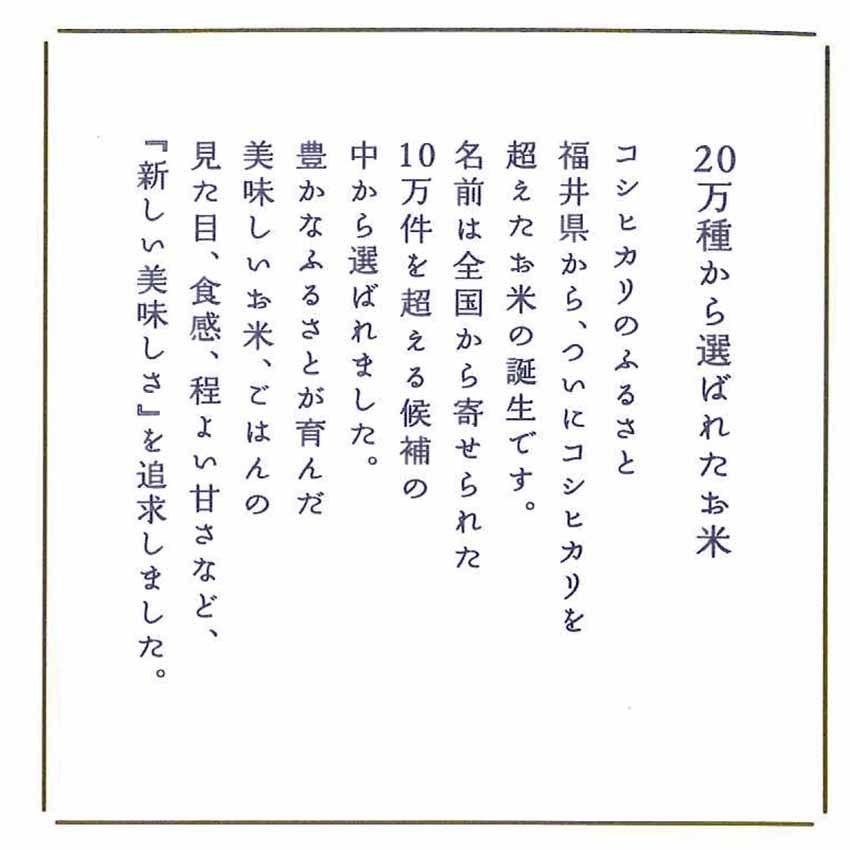 20万種から選ばれたお米
コシヒカリのふるさと
福井県から、ついにコシヒカリを
超えたお米の誕生です。
名前は全国から寄せられた
10万件を超える候補の
中から選ばれました。
豊かなふるさとが育んだ
美味しいお米、ごはんの
見た目、食感、程よい甘さなど、
『新しい美味しさ』を追求しました。